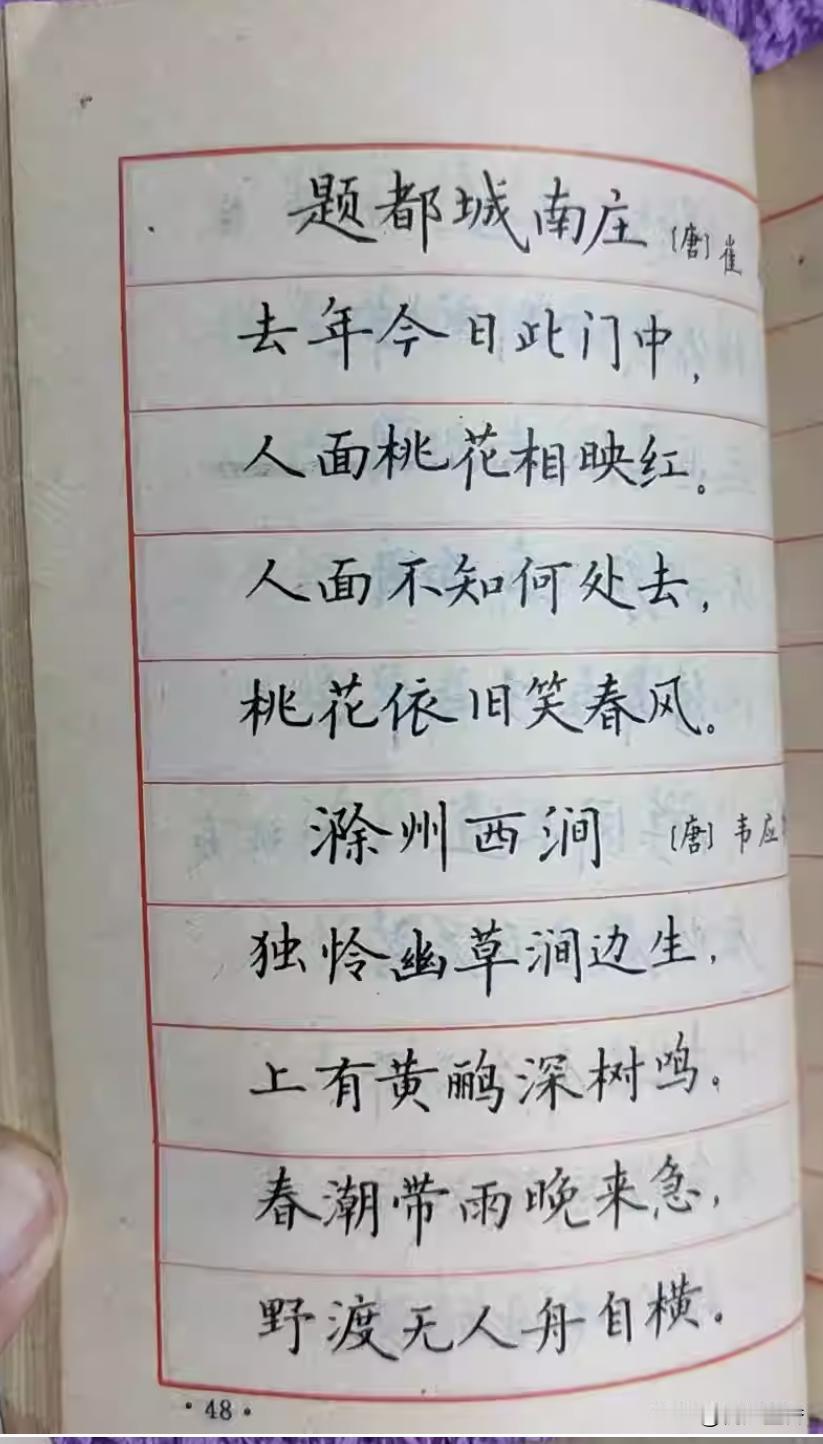 题都城南庄 〔唐〕崔
去年今日此门中，
人面桃花相映红。
人面不知何处去，
桃花依旧笑春风。
滁州西涧 〔唐〕韦应
独怜幽草涧边生，
上有黄鹂深树鸣。
春潮带雨晚来急，
野渡无人舟自横。
·48·